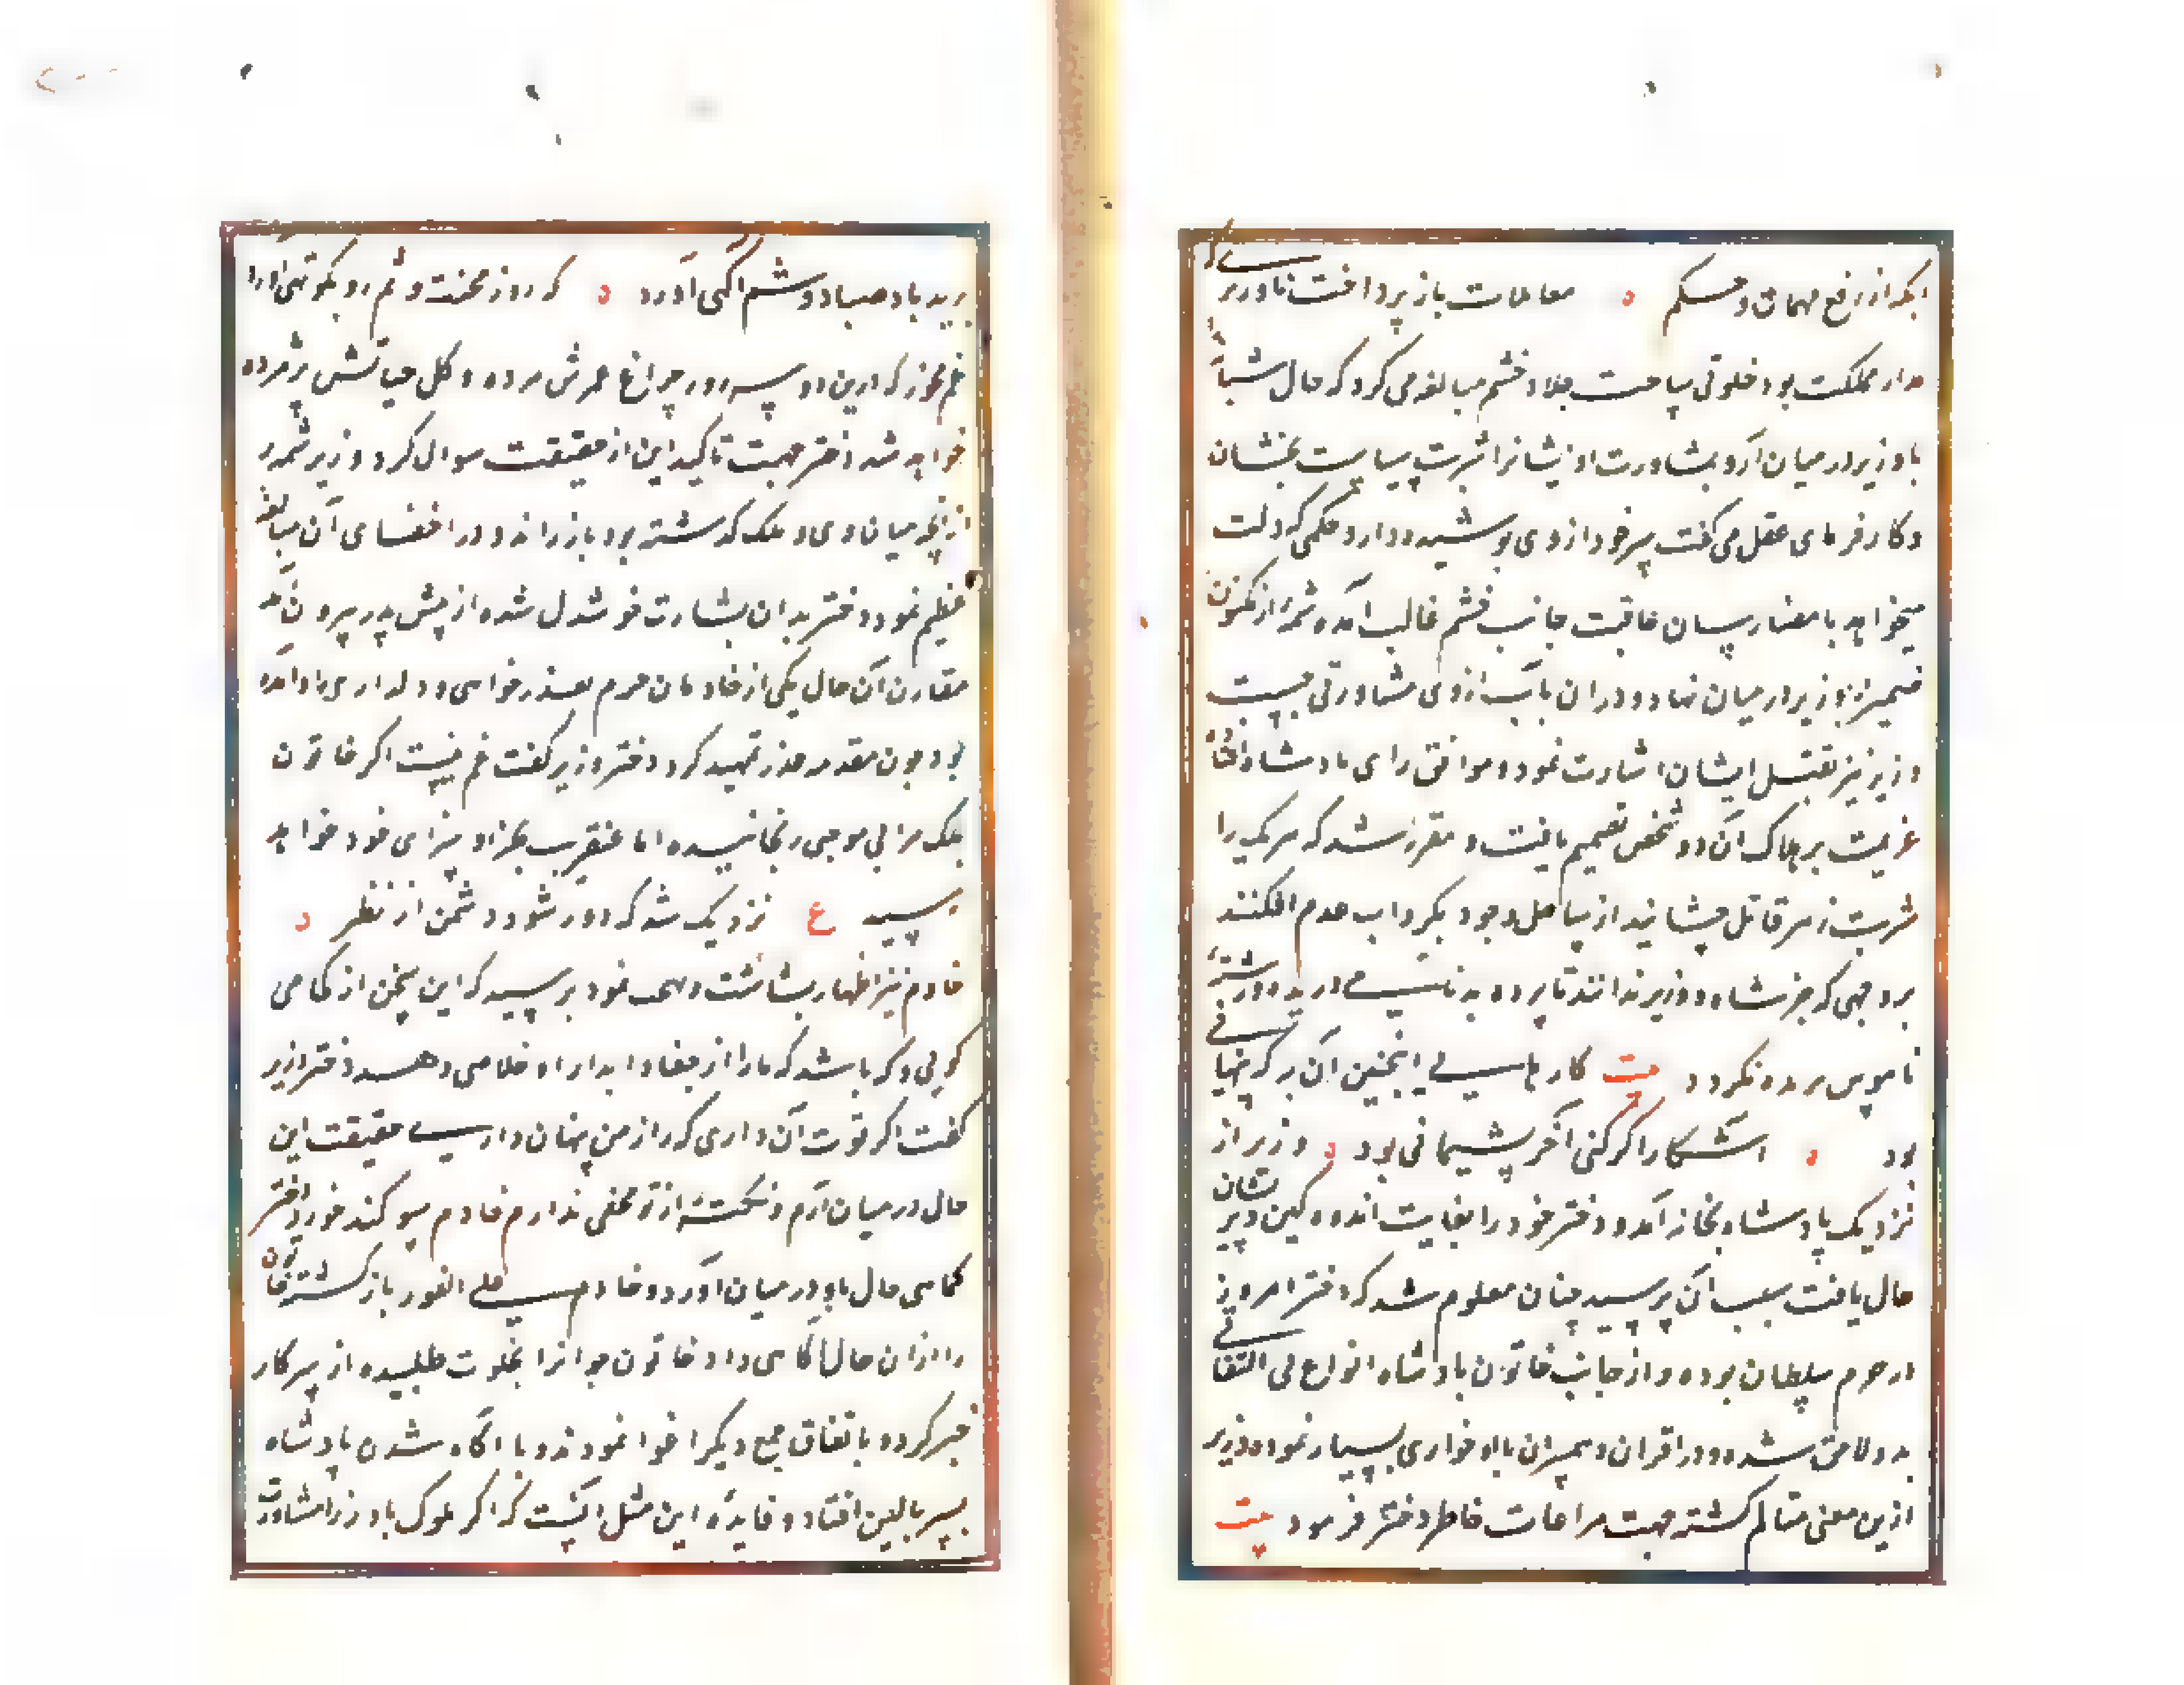 بعد از رفع مهمات و حسم معاملات باز پرداخت تا وزیری که
مدار مملکت بود خلوتی ساخت جلاد خشم مبالغه می کرد که حال شبا
با وزیر در میان آر و بمشاورت او ایشانرا شربت سیاست بچشان
و کارفرمای عقل می گفت سر خود از وی پوشیده دار و حکمی که دلت
میخواهد بامضا رسان عاقبت جانب خشم غالب آمده شمه از مکنون
ضمیر با وزیر در میان نهاد و دران باب ازوی مشاورتی جست
وزیر نیز بقتل ایشان اشارت نمود و موافق رای پادشاه
عزیمت بر هلاک آن دو شخص تصمیم یافت و مقرر شد که هر یک را
شربت زهر قاتل چشانیده از ساحل وجود بگرداب عدم افکنند
بر وجهی که جز شاه و وزیر ندانند تا پرده بدنامی دریده و رشته
ناموس بریده نگردد بیت کارهایی اینچنین آن به که پنهانی
بود آشکارا گر کنی آخر پشیمانی بود وزیر از
نزدیک پادشاه بخانه آمد و دختر خود را بغایت اندوهگین و پریشان
حال یافت سبب آن پرسید چنان معلوم شد که دختر امروز
در حرم سلطان بوده و از جانب خاتون پادشاه انواع بی التفاتی
بدو لاحق شده و در اقران و همسران با او خواری بسیار نموده وزیر
ازین معنی متالم گشته جهت مراعات خاطر دختر فرمود بیت
برید باد صبا دوشم آگهی آورد که روز محنت و غم رو بکوتهی آرد
غم مخور که درین دو سه روز چراغ عمرش مرده و گل حیاتش پژمرده
خواهد شد دختر جهت تاکید این از حقیقت سوال کرد وزیر شمه
از آنچه میان وی و ملک گذشته بود باز راند و در اخفای آن مبالغه
عظیم نمود دختر بدان بشارت خوشدل شده از پیش پدر بیرون آمد
مقارن آن حال یکی از خادمان حرم بعذرخواهی و دلداری او آمده
بود چون مقدمه عذر تمهید کرد دختر وزیر گفت غم نیست اگر خاتون
ملک مرا بی موجبی رنجانیده اما عنقریب بجزا و سزای خود خواهد
رسید ع نزدیک شد که دور شود دشمن از نظر
خادم نیز اظهار بشاشت نمود پرسید که این سخن از کجا می
گویی و کی باشد که ما را از جفا و ایذاء او خلاصی دهد دختر وزیر
گفت اگر قوت آن داری که راز من پنهان داری حقیقت این
حال در میان آرم و نکته از تو مخفی ندارم خادم سوگند خورد و دختر
کماهی حال با او در میان آورد و خادم علی الفور باز گشته خاتون
را ازان حال آگاهی داد خاتون جوانرا بخلوت طلبیده از سر کار
خبر کرد و باتفاق جمع دیگر اغوا نمودند و با آگاه شدن پادشاه
بسر بالین افتاد و فایده این مثل آنست که اگر ملوک با وزرا مشاورت